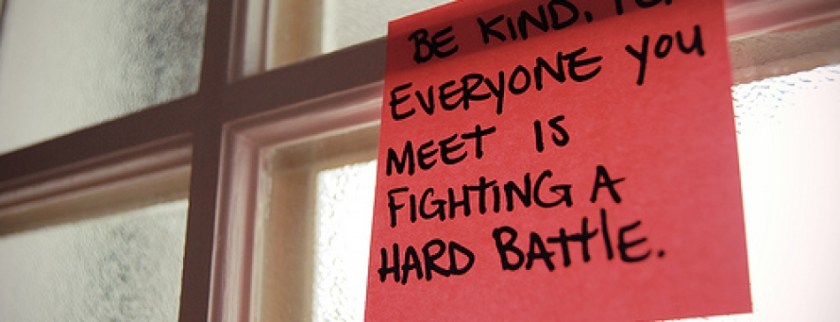 BE KIND, FOR
EVERYONE YOU
MEET IS
FIGHTING A
HARD BATTLE.